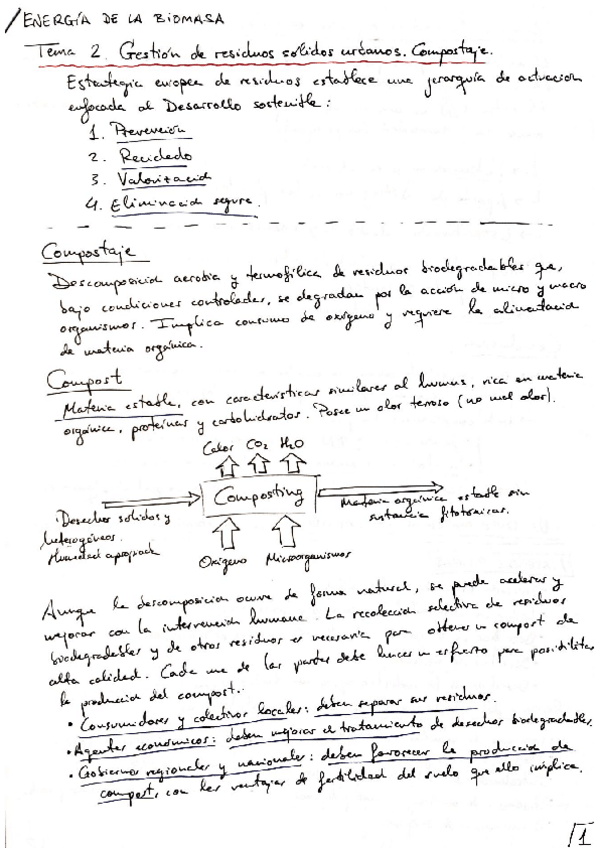 ENERGÍA DE LA BIOMASA
Tema 2. Gestión de residuos sólidos urbanos. Compostaje.
Estrategia europea de residuos establece una jerarquía de actuación
enfocada al Desarrollo sostenible:
1. Prevención
2. Reciclado
3. Valorización
4. Eliminación segura.
Compostaje
Descomposición aerobia y termofílica de residuos biodegradables que,
bajo condiciones controladas, se degradan por la acción de micro y macro
organismos. Implica consumo de oxígeno y requiere la alimentación
de materia orgánica.
Compost
Materia estable, con características similares al humus, rica en materia
orgánica, proteínas y carbohidratos. Posee un olor terroso (no mal olor).
Calor CO2 H2O
Composting
Desechos sólidos y
heterogéneos.
Humedad apropiada
Materia orgánica estable sin
sustancia fitotóxicas.
Oxígeno Microorganismos
Aunque la descomposición ocurre de forma natural, se puede acelerar y
mejorar con la intervención humana. La recolección selectiva de residuos
biodegradables y de otros residuos es necesaria para obtener un compost de
alta calidad. Cada una de las partes debe hacer un esfuerzo para posibilitar
la producción del compost.
• Consumidores y colectivos locales: deben separar sus residuos.
• Agentes económicos: deben mejorar el tratamiento de desechos biodegradables.
• Gobiernos regionales y nacionales: deben favorecer la producción de
compost, con las ventajas de fertilidad del suelo que ello implica.
1